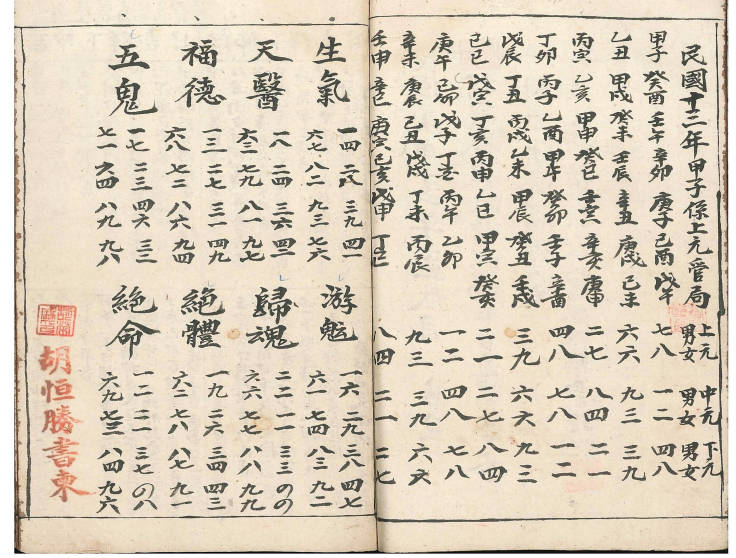 民國十二年甲子係上元管局
上元男女 中元男女 下元男女
甲子 癸酉 壬午 辛卯 庚子 己酉 戊午 七八 一二 四八
乙丑 甲戌 癸未 壬辰 辛丑 庚戌 己未 六六 九三 三九
丙寅 乙亥 甲申 癸巳 壬寅 辛亥 庚申 二七 八四 二一
丁卯 丙子 乙酉 甲午 癸卯 壬子 辛酉 四八 七八 一二
戊辰 丁丑 丙戌 乙未 甲辰 癸丑 壬戌 三九 六六 九三
己巳 戊寅 丁亥 丙申 乙巳 甲寅 癸亥 二一 二七 八四
庚午 己卯 戊子 丙午 乙卯 一二 四八 七八
辛未 庚辰 己丑 戊戌 丁未 丙辰 九三 三九 六六
壬申 辛巳 庚寅 己亥 戊申 丁巳 八四 二一 二七
生氣
一四 二八 三九 四一
六七 八二 九三 七六
天醫
一八 二四 三六 四二
六三 七九 八一 九七
福德
一三 二七 三一 四九
六八 七二 八六 九四
五鬼
一七 二三 四六 三二
七一 六四 八九 九八
游魂
一六 二九 三八 四七
六一 七四 八三 九二
歸魂
二二 一一 三三 〇〇
六六 七七 八八 九九
絕體
一九 二六 三四 四三
六二 七八 八七 九一
絕命
一二 二一 三七 〇八
六九 七三 八四 九六
胡恒勝書柬